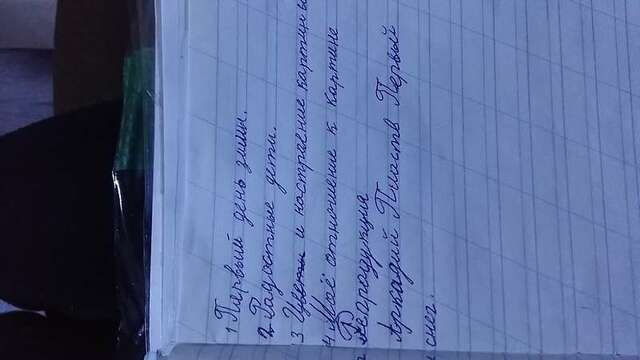 1 Первый день зимы.
2 Радостные дети.
3 Цветы и настроение картины
4 Моё отношение к картине
Репродукция
Аркадий Пластв Первый
снег.